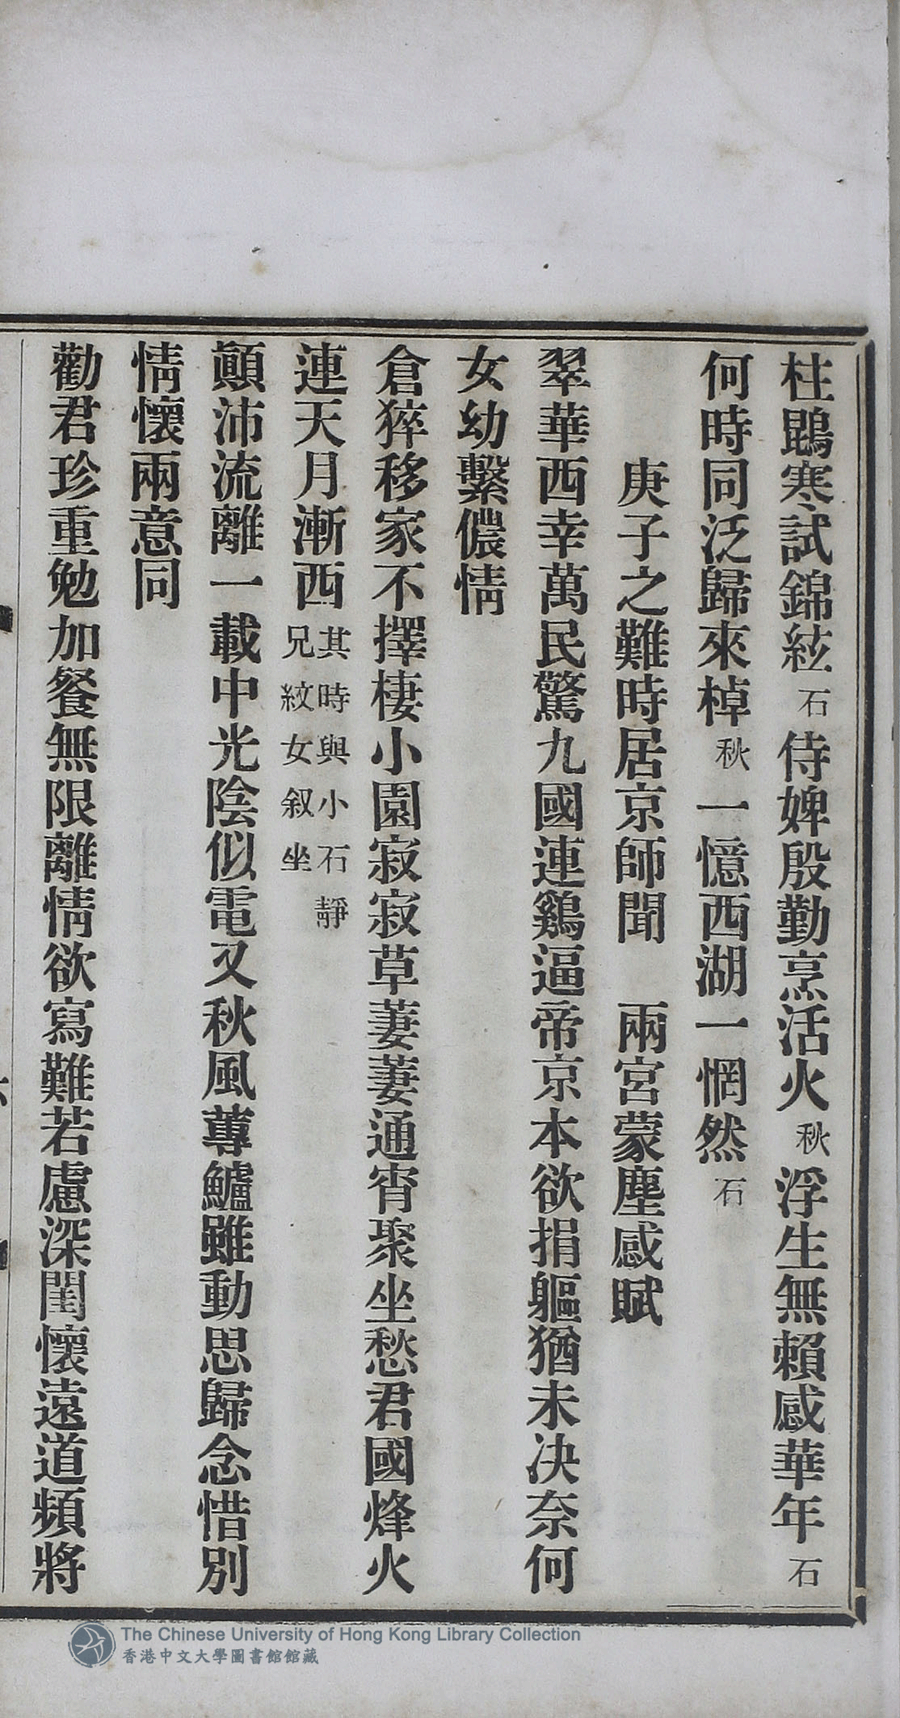 柱鵾寒試錦絃石侍婢殷勤烹活火秋浮生無賴感華年石
何時同泛歸來棹秋一憶西湖一惘然石
庚子之難時居京師聞　兩宮蒙塵感賦
翠華西幸萬民驚九國連鷄逼帝京本欲捐軀猶未决奈何
女幼繫儂情
倉猝移家不擇棲小園寂寂草萋萋通宵聚坐愁君國烽火
連天月漸西其時與小石靜兄紋女叙坐
顚沛流離一載中光陰似電又秋風蓴鱸雖動思歸念惜別
情懷兩意同
勸君珍重勉加餐無限離情欲寫難若慮深閨懷遠道頻將
The Chinese University of Hong Kong Library Collection
香港中文大學圖書館館藏